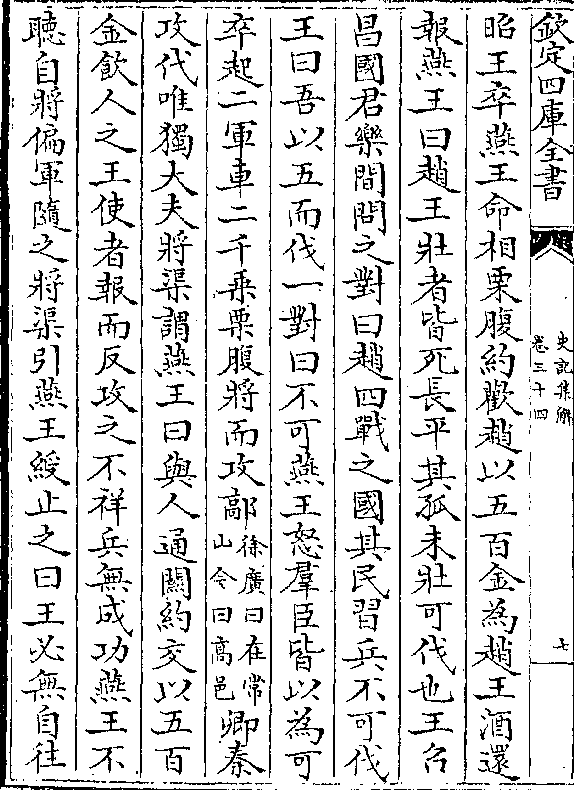 欽定四庫全書
史記集解
卷三十四
七
昭王卒燕王命相栗腹約歡趙以五百金為趙王酒還
報燕王曰趙王壯者皆死長平其孤未壯可伐也王召
昌國君樂間問之對曰趙四戰之國其民習兵不可伐
王曰吾以五而伐一對曰不可燕王怒羣臣皆以為可
卒起二軍車二千乗栗腹將而攻鄗徐廣曰在常山今曰高邑卿秦
攻代唯獨大夫將渠謂燕王曰與人通關約交以五百
金飲人之王使者報而反攻之不祥兵無成功燕王不
聽自將偏軍隨之將渠引燕王綬止之曰王必無自往